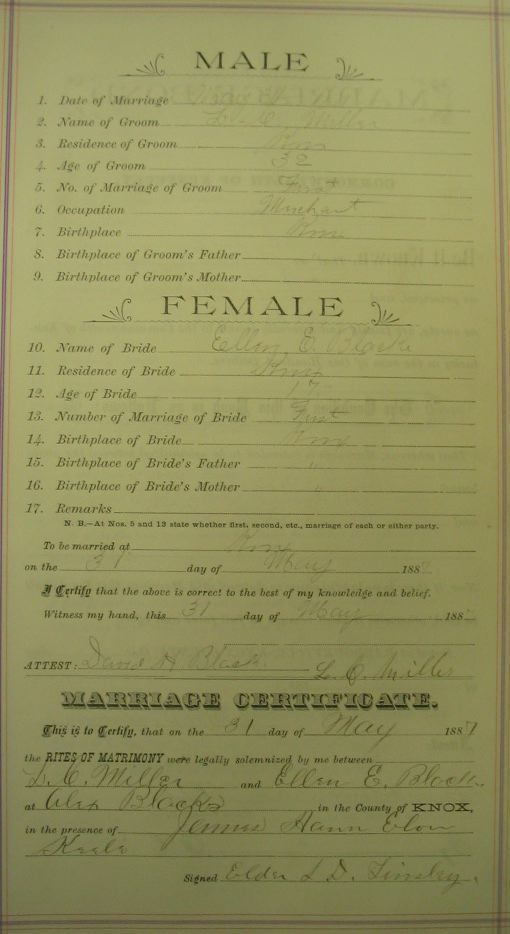 MALE
1. Date of Marriage
2. Name of Groom L. C. Miller
3. Residence of Groom Knox
4. Age of Groom 32
5. No. of Marriage of Groom First
6. Occupation Merchant
7. Birthplace Knox
8. Birthplace of Groom's Father
9. Birthplace of Groom's Mother
FEMALE
10. Name of Bride Ellen E. Black
11. Residence of Bride Knox
12. Age of Bride 17
13. Number of Marriage of Bride First
14. Birthplace of Bride Knox
15. Birthplace of Bride's Father "
16. Birthplace of Bride's Mother "
17. Remarks
N. B.—At Nos. 5 and 13 state whether first, second, etc., marriage of each or either party.
To be married at Knox
on the 31 day of May 1887
I Certify that the above is correct to the best of my knowledge and belief.
Witness my hand, this 31 day of May 1887
ATTEST: David H Black L. C. Miller
MARRIAGE CERTIFICATE.
This is to Certify, that on the 31 day of May 1887
the RITES OF MATRIMONY were legally solemnized by me between
L. C. Miller and Ellen E. Black
at Alex Blacks in the County of KNOX,
in the presence of Hann
Signed Elder L D. Tinsley.